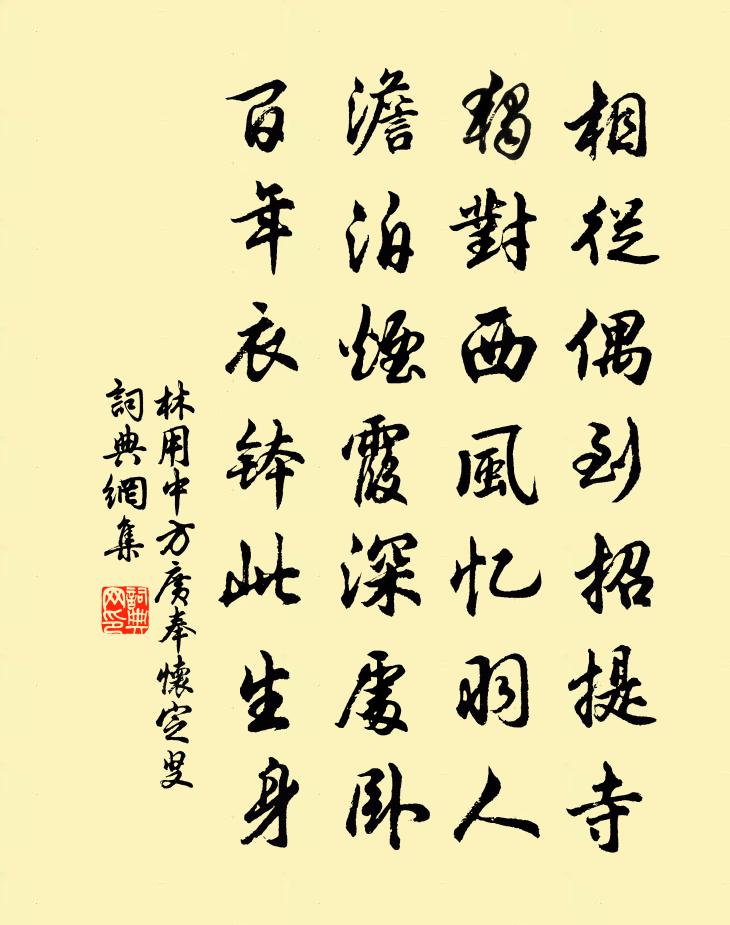 相從偶到招提寺
獨對西風忆羽人
澹泊煙霞深處卧
百年衣钵此生身
林用中方廣奉懷定叟
詞典網集
詞典网印